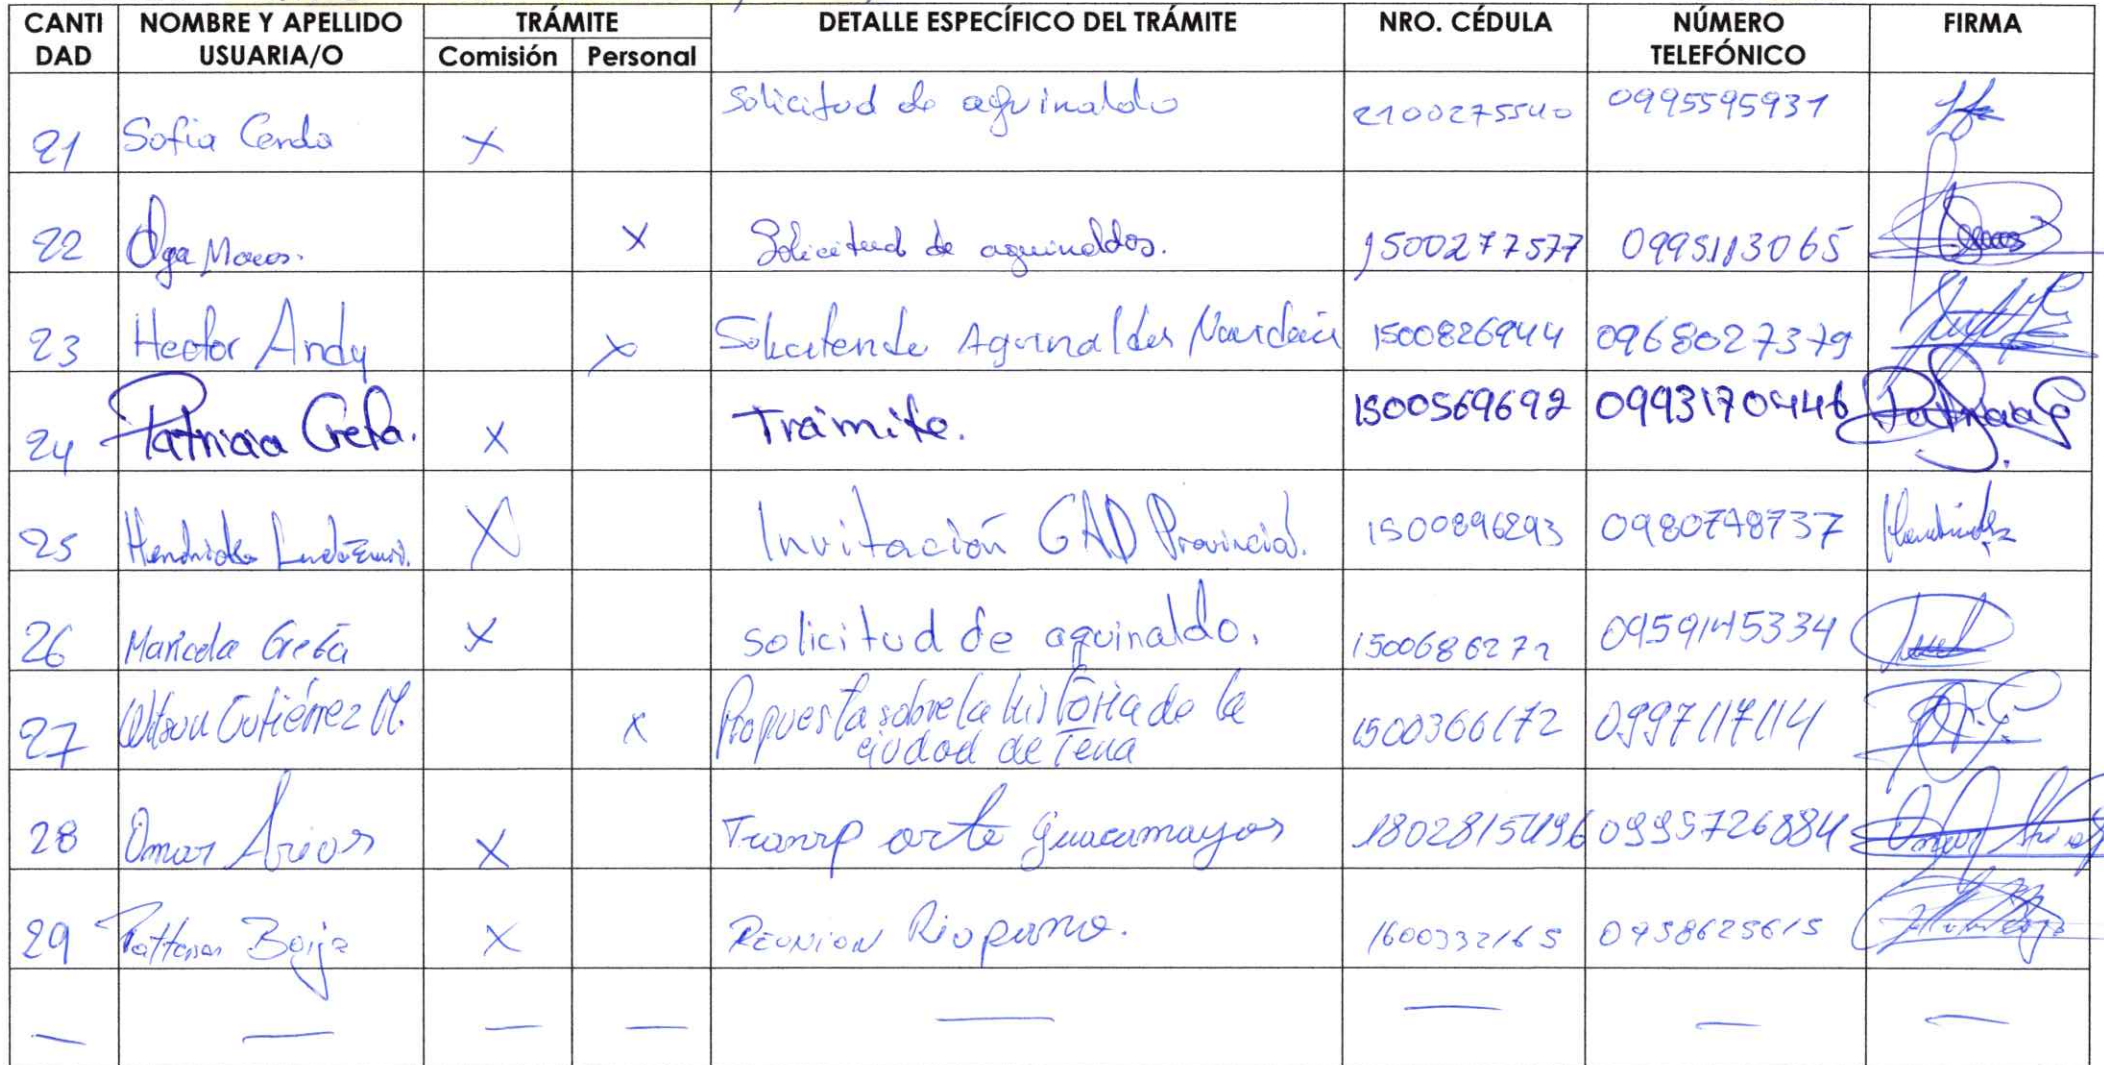 CANTI DAD NOMBRE Y APELLIDO USUARIA/O TRÁMITE Comisión Personal DETALLE ESPECÍFICO DEL TRÁMITE NRO. CÉDULA NÚMERO TELEFÓNICO FIRMA
21 Sofia Cerda X Solicitud de aguinaldo 2100275540 0995595931
22 Olga X Solicitud de aguinaldos. 1500277577 0995113065
23 Hector Andy X Aguinaldos 1500826944 0968027379
24 Patricia Grefa. X Trámite. 1500569692 09931704446
25 X Invitación GAD Provincial. 1500896293 0980748737
26 Maricela Grefa X solicitud de aguinaldo. 1500686272 0959145334
27 Wilson Gutiérrez M. X Propuesta sobre la história de la
ciudad de Tena 1500366172 0997117114
28 Omar Arias X Transp orte guacamayos 1802815496 0995726884
29 Borja X REUNION 1600332165 0958625615
— — — — — — — —